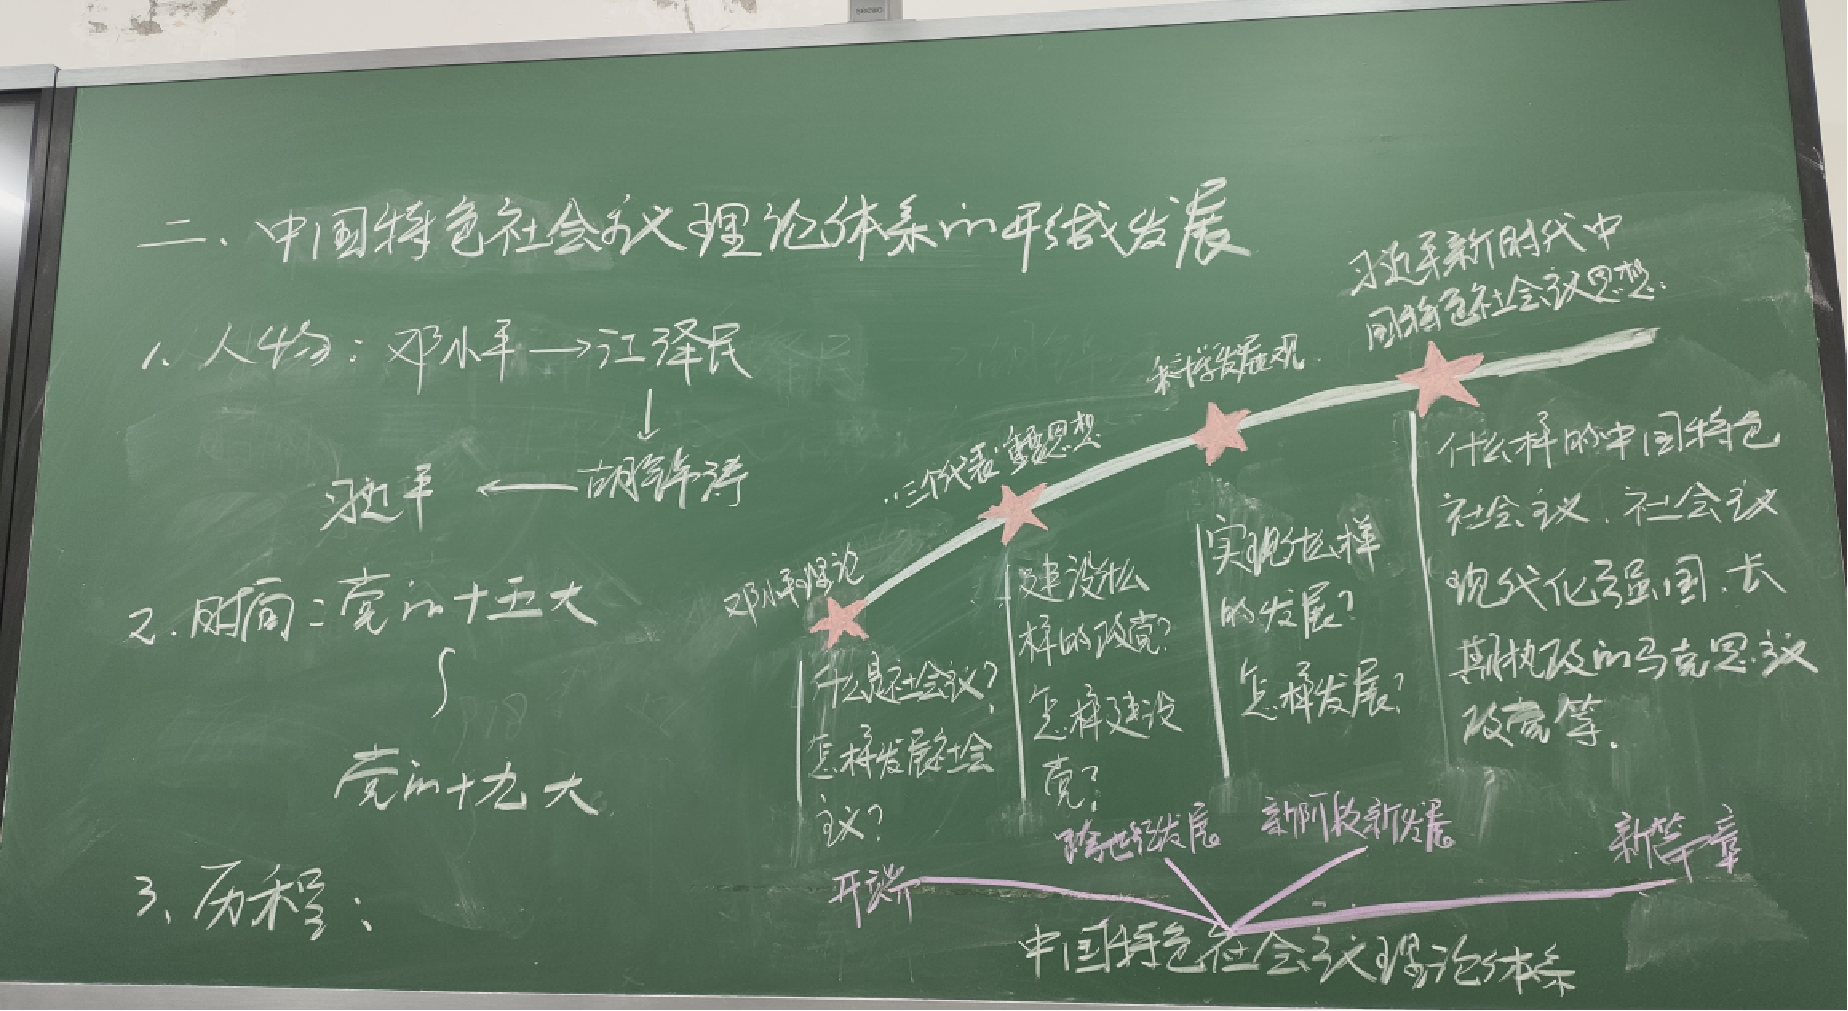 二、中国特色社会主义理论体系的形成发展
1. 人物：邓小平→江泽民
↓
习近平←胡锦涛
2. 时间：党的十五大
∫
党的十九大
3、历程：
邓小平理论
什么是社会主义？
怎样发展社会
主义？
“三个代表”重要思想
建设什么
样的政党？
怎样建设
党？
科学发展观
实现什么样
的发展？
怎样发展？
习近平新时代中
国特色社会主义思想
什么样的中国特色
社会主义、社会主义
现代化强国、长
期执政的马克思主义
政党等.
开端
跨世纪发展
新阶段新发展
新篇章
中国特色社会主义理论体系